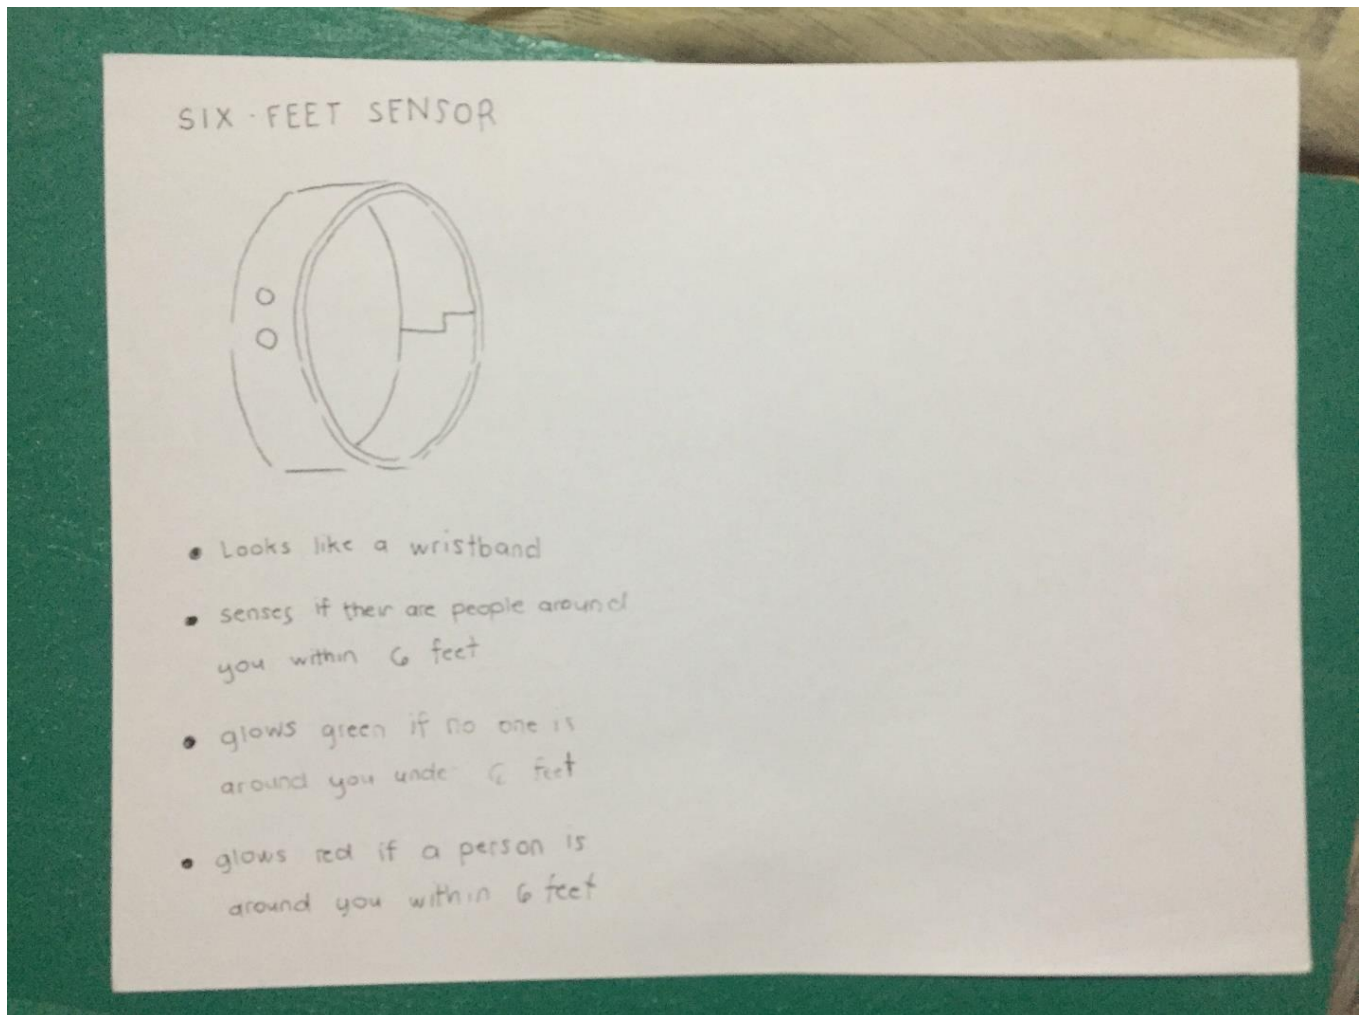 SIX-FEET SENSOR
• Looks like a wristband
• senses if their are people around
you within 6 feet
• glows green if no one is
around you unde 6 feet
• glows red if a person is
around you within 6 feet